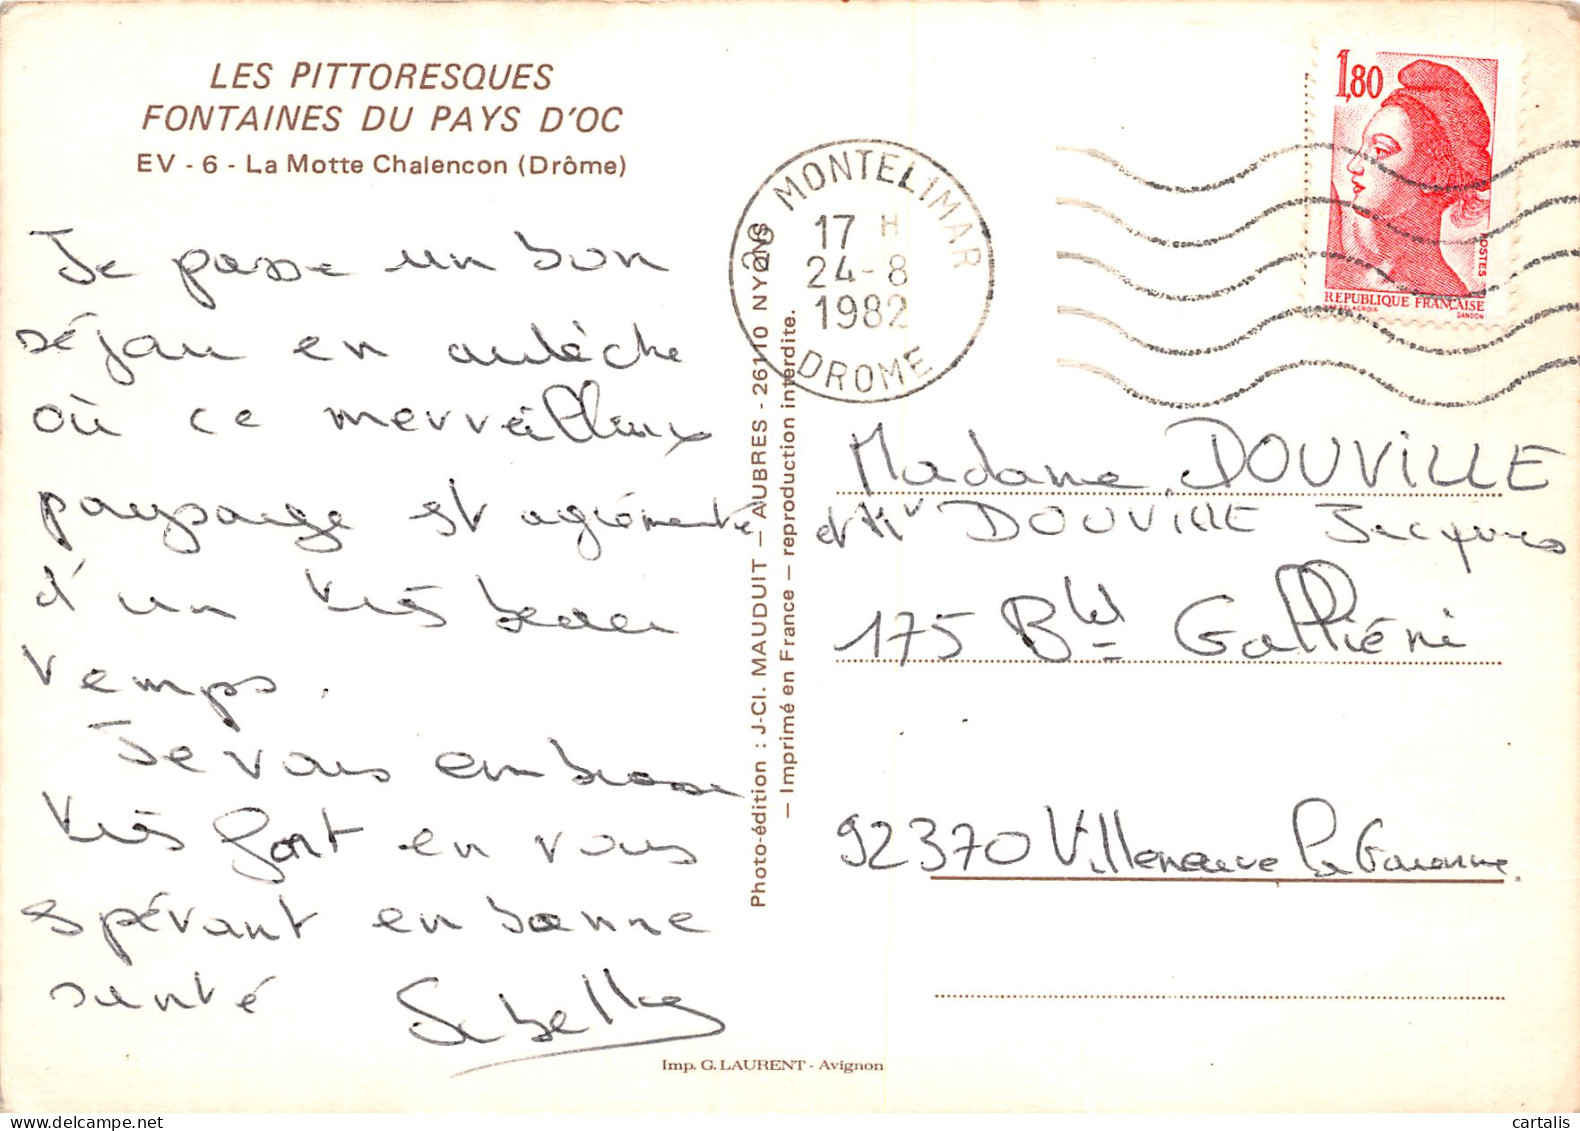 LES PITTORESQUES
FONTAINES DU PAYS D'OC
EV - 6 - La Motte Chalencon (Drôme)
Je passe un bon
séjour en ardèche
où ce merveilleux
paysage est agrémenté
d'un très beau
temps.
Je vous embrasse
très fort en vous
espérant en bonne
santé
Photo-édition : J-Cl. MAUDUIT — AUBRES - 26110 NYONS
— Imprimé en France — reproduction interdite.
26 MONTELIMAR
17 H
24-8
1982
DROME
1,80
POSTES
REPUBLIQUE FRANÇAISE
DELACROIX
GANDON
Madame DOUVILLE
et Mr DOUVILLE Jacques
175 Bld Galliéni
92370 Villeneuve la Garenne
Imp. G. LAURENT - Avignon
cartalis